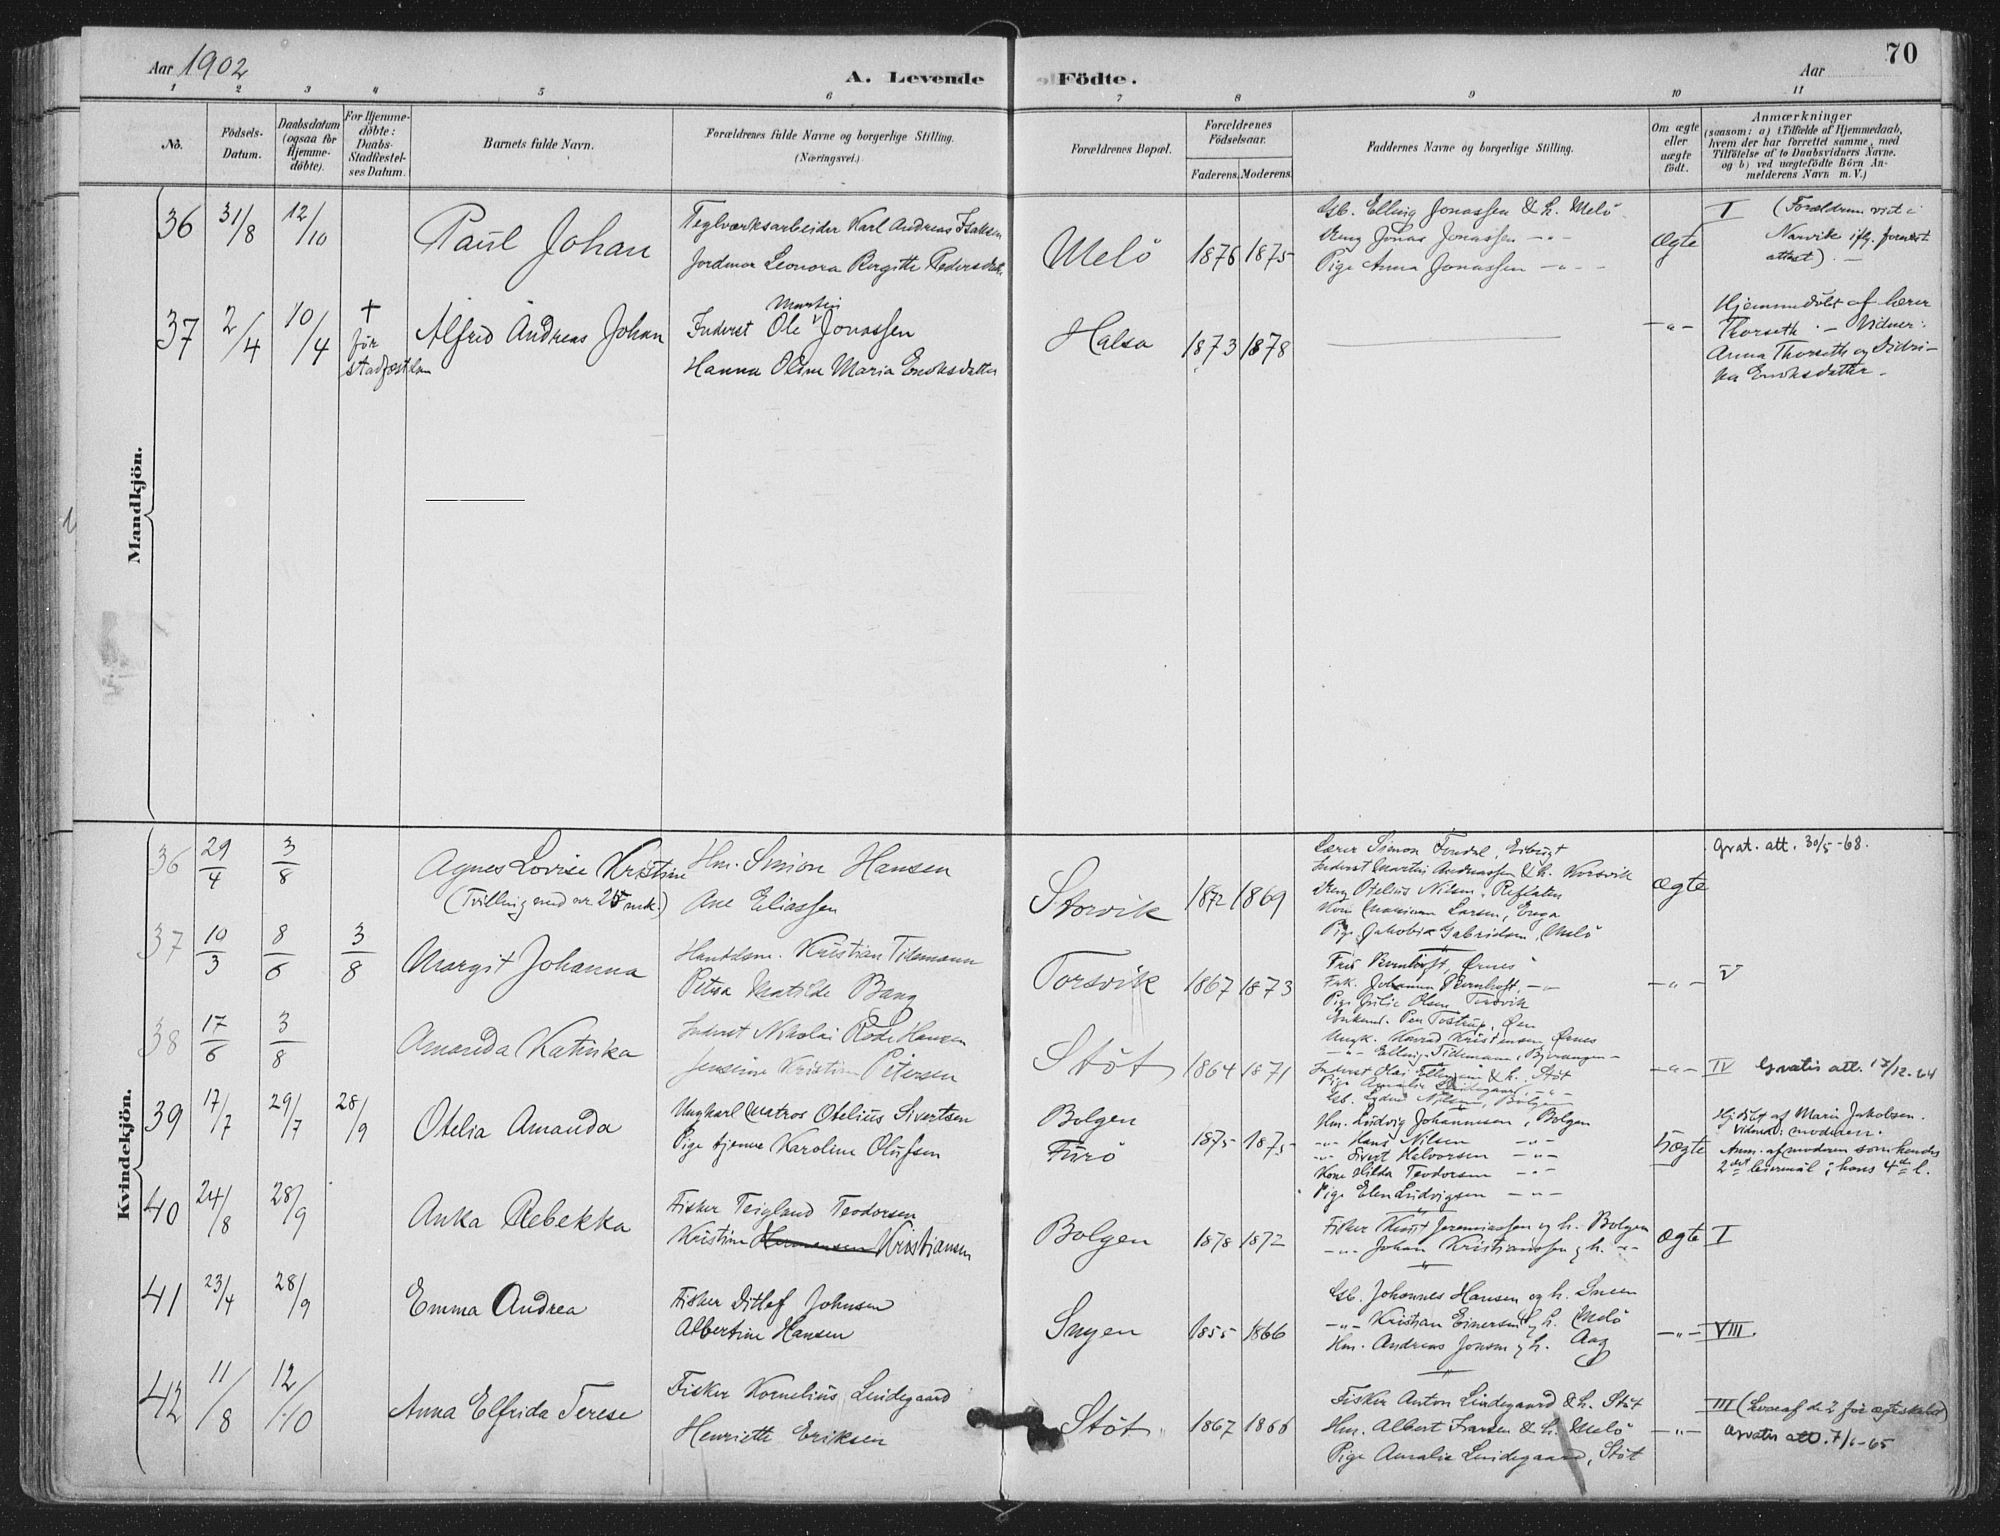 Aar 1902
A. Levende Födte.
Aar
70
1 2 3 4 5 6 7 8 9 10 11
No.
Födsels-Datum.
Daabsdatum (ogsaa for Hjemme-döbte).
For Hjemme-döbte: Daabs-Stadfæstel-ses Datum.
Barnets fulde Navn.
Forældrenes fulde Navne og borgerlige Stilling. (Næringsvei.)
Forældrenes Bopæl.
Forældrenes Födselsaar.
Faderens. Moderens.
Faddernes Navne og borgerlige Stilling.
Om ægte eller uægte födt.
Anmærkninger
(saasom: a) i Tilfælde af Hjemmedaab,
hvem der har forrettet samme, med
Tilföielse af to Daabsvidners Navne.
og b) ved uægtefödte Börn An-
melderens Navn m. V.)
Mandkjön.
36 31/8 12/10 Paul Johan
Teglværksarbeider Karl Andreas Isaksen
Jordmor Leonora Bergitte Pedersdatt.
Melö 1876 1875
Gb. Elling Jonassen & h. Melö
Dreng Jonas Jonassen -"-
Pige Anna Jonassen -"-
ægte
I (Forældrene viet i
Narvik iflg. forevist
attest). —
37 2/4 10/4 † før stadfæstelsen
Alfred Andreas Johan
Inderst Ole Martin Jonassen
Hanna Oline Maria Enoksdatter
Halsa 1873 1878
-"-
Hjemmedöbt af lærer
Thorseth. — Vidner:
Anna Thorseth og Didri-
ka Enoksdatter.
Kvindekjön.
36 29/4 3/8 Agnes Lovise Kristine
(Tvilling med nr 25 mk.)
Hm. Simon Hansen
Ane Eliassen
Storvik 1872 1869
Lærer Simon Fondal,
Inderst Martin Andreassen & h. Korsvik
Dreng Otelius Nilsen,
Kone Larsen, Enga
Pige Jakobie Gabrielsen, Melö
ægte
Grat. att. 30/5-68.
37 10/3 8/6 3/8 Margit Johanna
Handelsm. Kristian Tidemann
Petra Matilde Bang
Torsvik 1867 1873
Fru Bernhoft, Ørnes
Frk. Johanna Bernhoft, -"-
Pige Julie Olsen Torsvik
Enkem. Pen Tostrup, Øen
Ungk. Konrad Kristensen, Ørnes
-"- Elling Tidemann, Bjerangen
-"-
V
38 17/6 3/8 Amanda Katinka
Inderst Nikolai Rode Hansen
Jensine Kristine Petersen
Stöt 1864 1871
Inderst Olai Ellingsen & h. Stöt
Pige Amalie Lindegaard -"-
Gb. Nilsen, Bolgen
-"-
IV Gratis att. 17/12-64
39 17/7 29/7 28/9 Otelia Amanda
Ungkarl Matros Otelius Sivertsen
Pige tjener Karoline Olufsen
Bolgen
Furö
1875 1875
Hm. Ludvig Johannesen, Bolgen
-"- Hans Nilsen -"-
-"- Sivert Halvorsen -"-
Kone Hilda Teodorsen -"-
Pige Elen Ludvigsen -"-
Uægte
Hj.döbt af Maria Jakobsen.
Vidne: moderen.
Anm. af moderen som hendes
2det leiermål; hans 4de l.
40 24/8 28/9 Anka Rebekka
Fisker Teigland Teodorsen
Kristine Hermansen Kristiansen
Bolgen 1878 1872
Fisker Knut Jeremiassen og h. Bolgen
-"- Johan Kristianssen og h. -"-
ægte
I
41 23/4 28/9 Emma Andrea
Fisker Ditlef Johnsen
Albertine Hansen
Sngen 1855 1866
Gb. Johannes Hansen og h.
-"- Kristian Einersen og h. Melö
Hm. Andreas Jonsen og h. Aag
-"-
VIII.
42 11/8 12/10 Anna Elfrida Terese
Fisker Kornelius Lindegaard
Henriette Eriksen
Stöt 1867 1866
Fisker Anton Lindegaard & h. Stöt
Hm. Albert Fransen & h. Melö
Pige Amalie Lindegaard, Stöt
-"-
III (hvoraf de 2 för ægteskabet)
Gratis att. 7/1-65